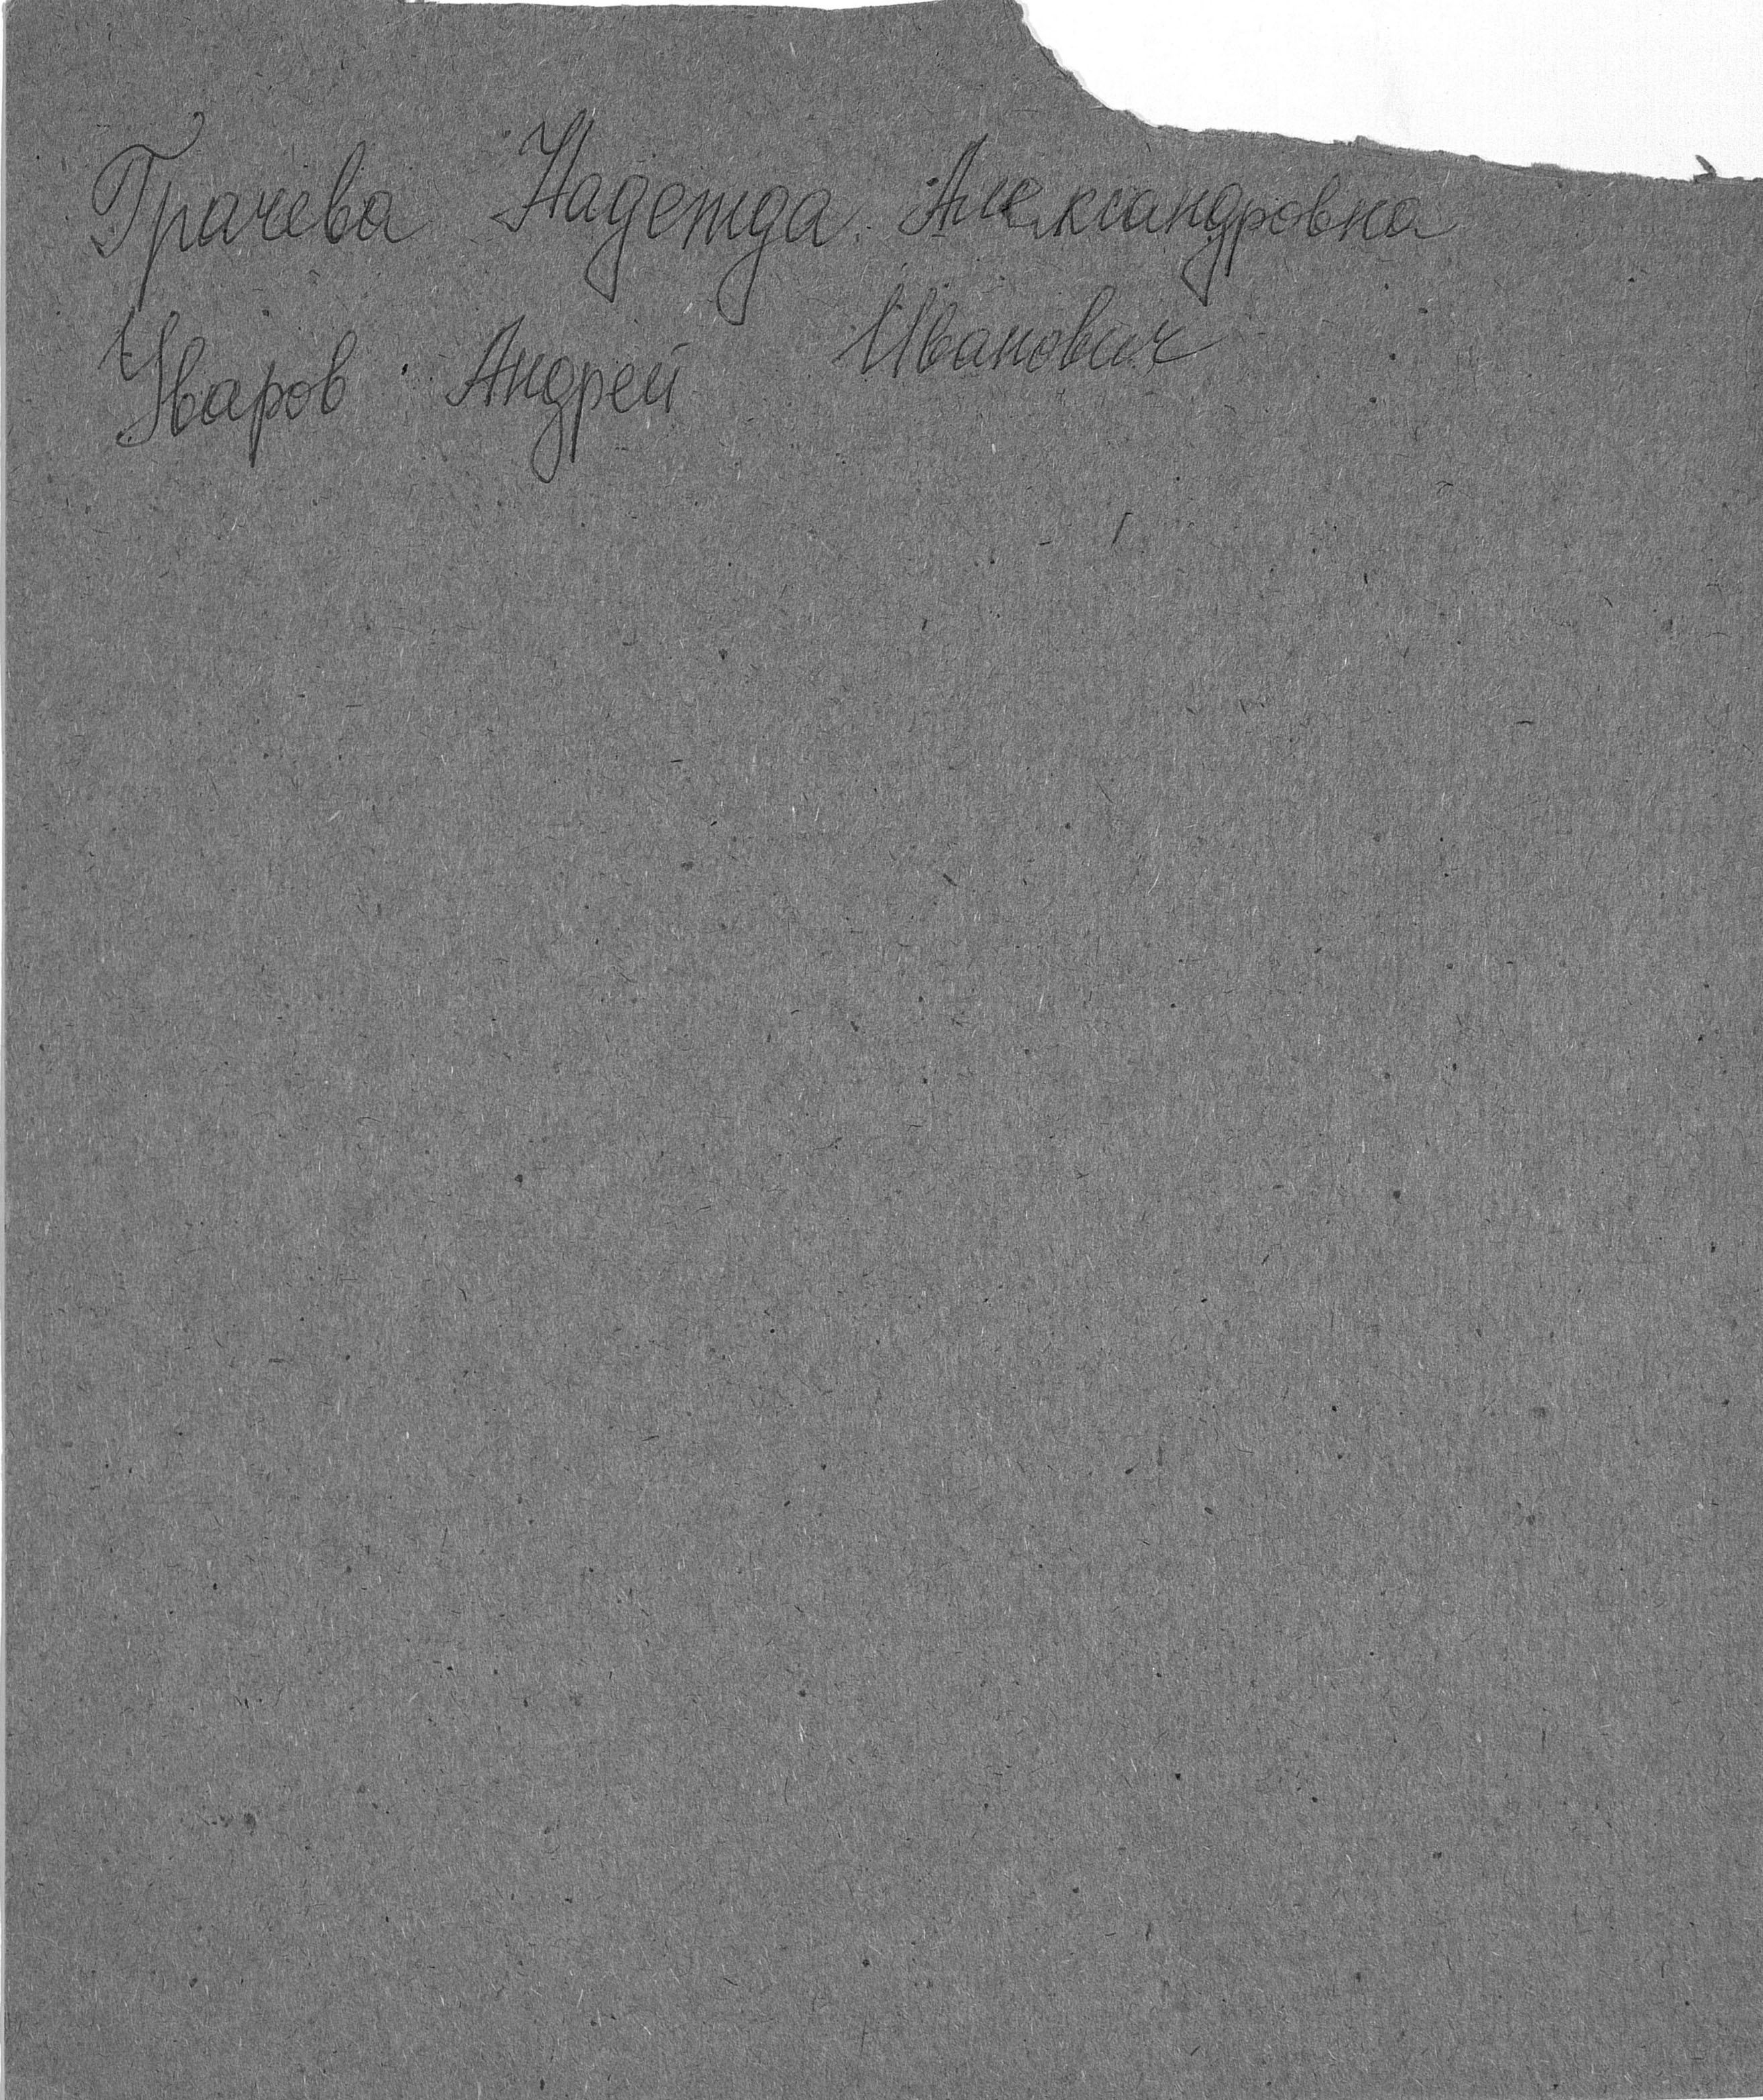 Грачева Надежда Александровна
Уваров Андрей Иванович